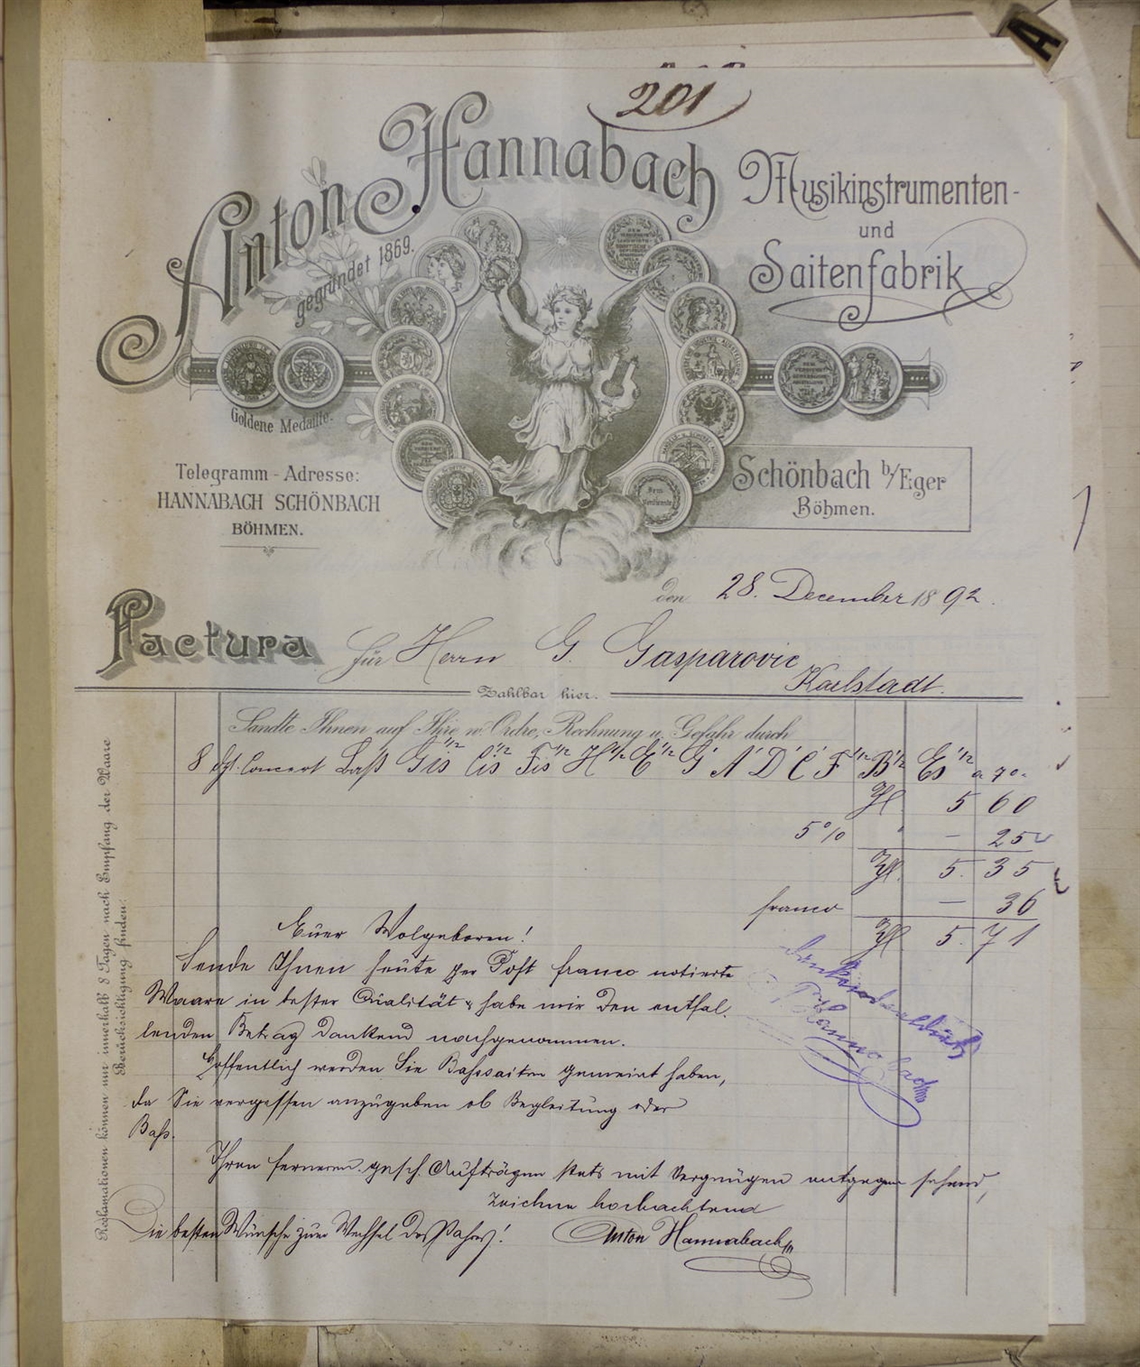 201
Anton Hannabach
gegründet 1869.
Musikinstrumenten-
und
Saitenfabrik
Goldene Medaille.
Telegramm-Adresse:
HANNABACH SCHÖNBACH
BÖHMEN.
Schönbach b/Eger
Böhmen.
den 28. December 1892.
Factura für Herrn G. Gasparovic
Karlstadt.
Zahlbar hier.
Sandte Ihnen auf Ihre w. Ordre, Rechnung u. Gefahr durch
8 Concert Baß Gis ½ Cis ½ Fis ½ H ½ E ½ G A D C F ½ B ½ Es ½ a 70.
Fl. 5 60
5% — 25
Fl. 5. 35
franco — 36
Fl. 5. 71
Euer Wolgeboren!
Sende Ihnen heute per Post franco notirte
Waare in bester Qualität & habe mir den entfal-
lenden Betrag dankend nachgenommen.
Hoffentlich werden Sie Basssaiten gemeint haben,
da Sie vergessen anzugeben ob Begleitung oder
Bass.
Ihren ferneren gesch. Aufträgen stets mit Vergnügen entgegen sehend,
zeichne hochachtend
Die besten Wünsche zum Wechsel des Jahres! Anton Hannabach
Reclamationen können nur innerhalb 8 Tagen nach Empfang der Waare
Berücksichtigung finden.
A